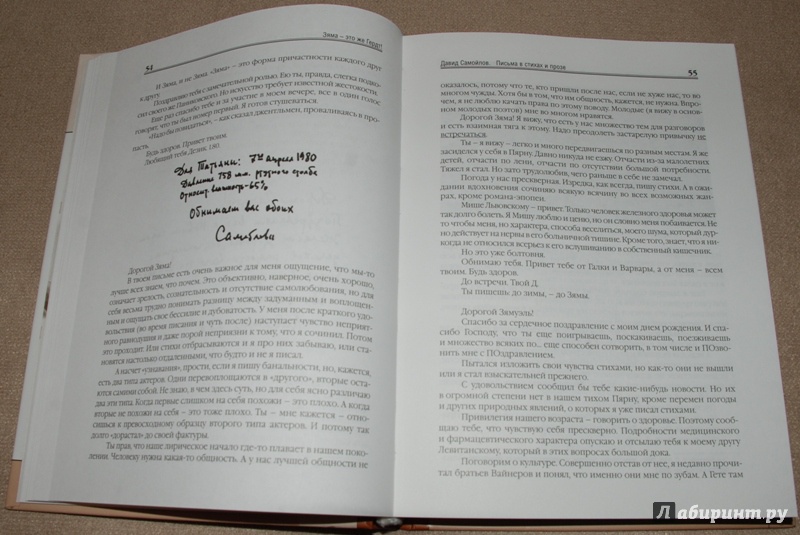 54
Зяма – это же Гердт!
И Зяма, и не Зяма. «Зяма» – это форма причастности каждого друг
к другу.
Поздравляю тебя с замечательной ролью. Ею ты, правда, слегка подко-
сил своего же Паниковского. Но искусство требует известной жестокости.
Еще раз спасибо тебе за участие в моем вечере, все в один голос
говорят, что ты был номер первый. Я готов стушеваться.
«Надо бы повидаться», – как сказал джентльмен, проваливаясь в про-
пасть.
Будь здоров. Привет твоим.
Любящий тебя Дезик.
Для Татьяны: 7го апреля 1980
Давление 758 мм. ртутного столба
Относит. влажность – 65%
Обнимаем вас обоих
Самойлов
Дорогой Зяма!
В твоем письме есть очень важное для меня ощущение, что мы-то
лучше всех знаем, что почем. Это объективно, наверное, очень хорошо,
означает зрелость, сознательность и отсутствие самолюбования, но для
себя весьма трудно понимать разницу между задуманным и воплощен-
ным и ощущать свое бессилие и дубоватость. У меня после краткого удов-
вольствия (во время писания и чуть после) наступает чувство неприят-
ного равнодушия и даже порой неприязни к тому, что я сочинил. Потом
это проходит. Или стихи отбрасываются и я про них забываю, или ста-
новятся настолько отдаленными, что будто и не я писал.
А насчет «узнавания», прости, если я пишу банальности, но, кажется,
есть два типа актеров. Одни перевоплощаются в «другого», вторые оста-
ются самими собой. Не знаю, в чем здесь суть, но для себя ясно различаю
два эти типа. Когда первые слишком на себя похожи – это плохо. А когда
вторые не похожи на себя – это тоже плохо. Ты – мне кажется – отно-
сишься к превосходному образцу второго типа актеров. И потому так
долго «дорастал» до своей фактуры.
Ты прав, что наше лирическое начало где-то плавает в нашем поко-
лении. Человеку нужна какая-то общность. А у нас лучшей общности не
Давид Самойлов. Письма в стихах и прозе
55
оказалось, потому что те, кто пришли после нас, если не хуже нас, то во
многом чужды. Хотя бы в том, что им общность, кажется, не нужна. Впро-
чем, я не люблю качать права по этому поводу. Молодые (я вижу в основ-
ном молодых поэтов) мне во многом нравятся.
Дорогой Зяма! Я вижу, что есть у нас множество тем для разговоров
и есть взаимная тяга к этому. Надо преодолеть застарелую привычку не
встречаться.
Ты – я вижу – легко и много передвигаешься по разным местам. Я же
засиделся в Пярну. Давно никуда не езжу. Отчасти из-за малолетних
детей, отчасти по лени, отчасти по отсутствию большой потребности.
Тяжел стал. Но зато трудолюбив, чего раньше в себе не замечал.
Погода у нас прескверная. Изредка, как всегда, пишу стихи. А в ожи-
дании вдохновения сочиняю всякую всячину во всех возможных жан-
рах, кроме романа-эпопеи.
Мише Львовскому – привет. Только человек железного здоровья может
так долго болеть. Я Мишу люблю и ценю, но он словно меня побаивается. Не
то чтобы меня, но характера, способа веселиться, моего шума, который дур-
но действует на нервы в его больничной тишине. Кроме того, знает, что я ни-
когда не относился всерьез к его вслушиванию в собственный кишечник.
Но это уже болтовня.
Обнимаю тебя. Привет тебе от Галки и Варвары, а от меня – всем
твоим. Будь здоров.
До встречи. Твой Д.
Ты пишешь: до зимы, – до Зямы.
Дорогой Зямуэль!
Спасибо за сердечное поздравление с моим днем рождения. И спа-
сибо Господу, что ты еще поигрываешь, поскакиваешь, поезживаешь
и множество всяких по... еще способен сотворить, в том числе и ПОзво-
нить мне с ПОздравлением.
Пытался изложить свои чувства стихами, но как-то они не вышли
или я стал взыскательней прежнего.
С удовольствием сообщил бы тебе какие-нибудь новости. Но их
в огромной степени нет в нашем тихом Пярну, кроме перемен погоды
и других природных явлений, о которых я уже писал стихами.
Привилегия нашего возраста – говорить о здоровье. Поэтому сооб-
щаю тебе, что чувствую себя прескверно. Подробности медицинского
и фармацевтического характера опускаю и отсылаю тебя к моему другу
Левитанскому, который в этих вопросах большой дока.
Поговорим о культуре. Совершенно отстав от нее, я недавно прочи-
тал братьев Вайнеров и понял, что именно они мне по зубам. А Гете там
Лабиринт.ру